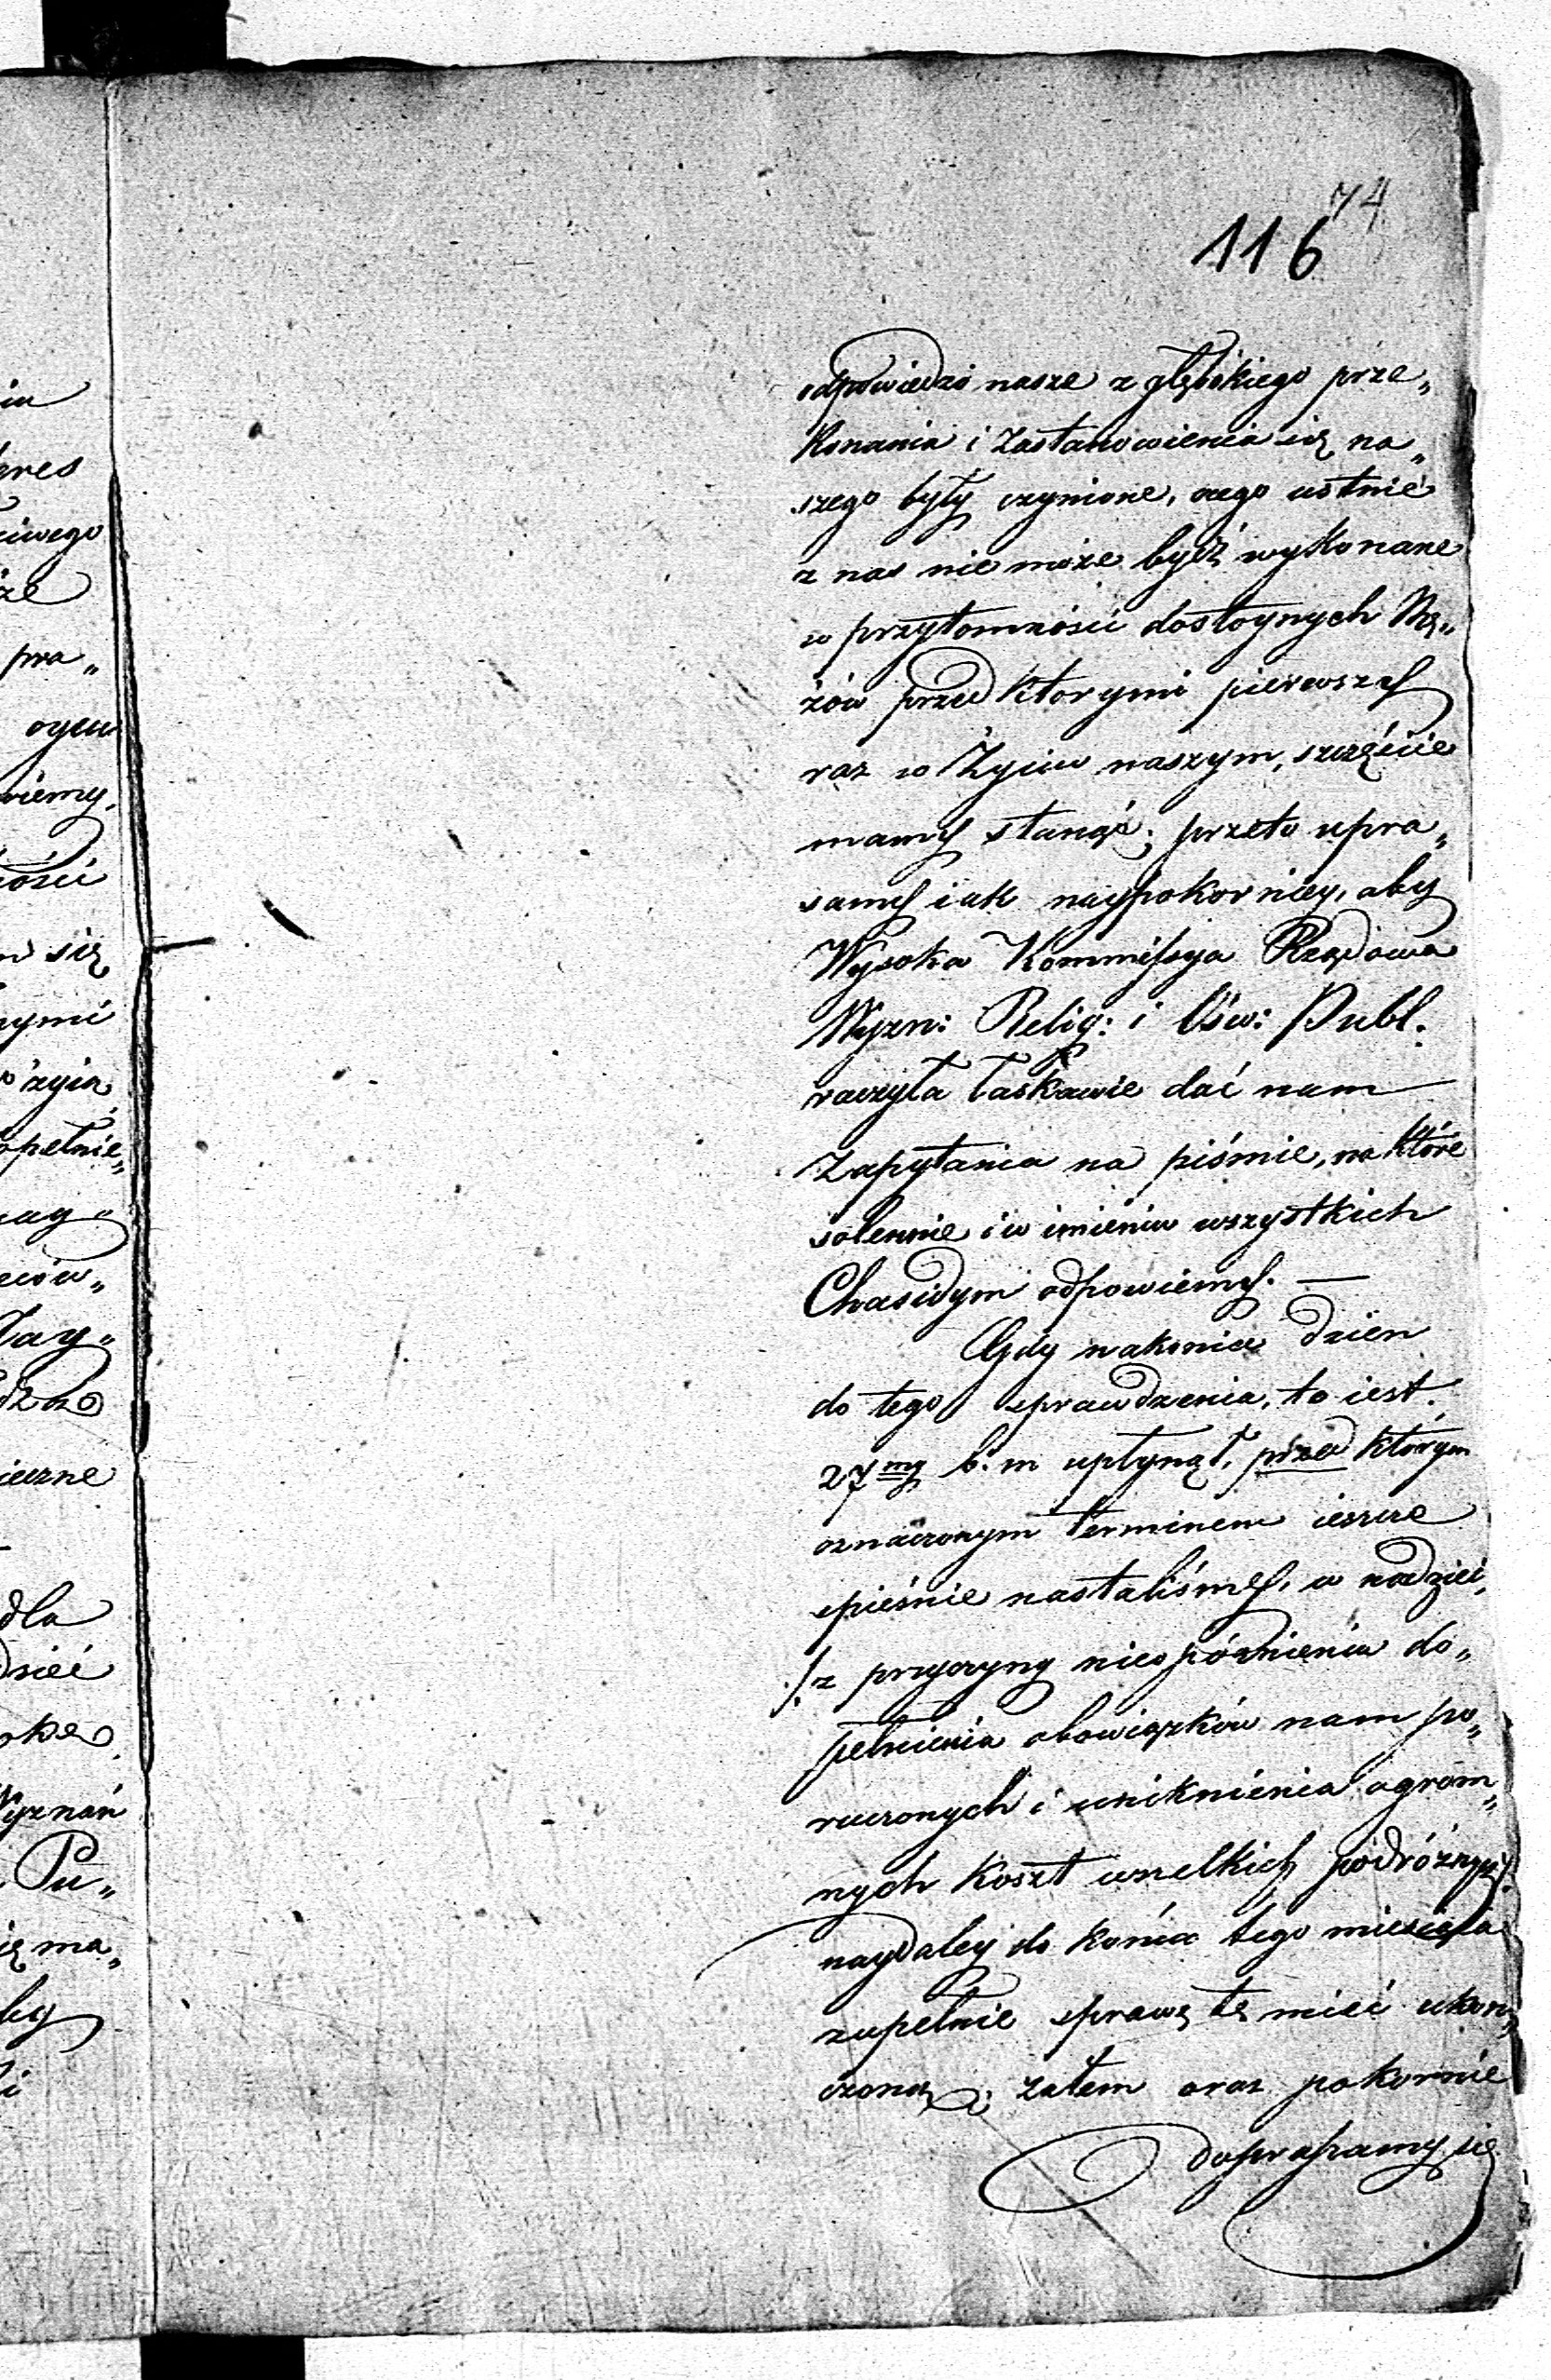 74
116
odpowiedzi nasze z głębokiego prze„
konania i zastanowienia się na„
szego były czynione, czego ustnie
z nas nie może bydź wykonane
w przytomności dostoynych Mę„
żów przed ktorymi pierwszy
raz w Życiu naszym, szczęście
mamy stanąć; przeto upra„
samy iak naypokorniey, aby
Wysoka Kommissya Rządowa
Wyzn: Relig: i Ośw: Publ.
raczyła łaskawie dać nam
Zapytania na piśmie, na które
solennie i w imieniu wszystkich
Chasidym odpowiemy. —
Gdy nakoniec dzien
do tego sprawdzenia, to iest.
27my b. m upłynął, przed którym
oznaczonym terminem ieszcze
spieśnie nastaliśmy, w nadziei,
/: z przyczyny nieopóźnienia do„
pełnienia obowiązków nam po„
ruczonych i uniknienia ogrom„
nych koszt wszelkich podróżnych :/
naydaley do końca tego miesiąca
zupełnie sprawę tę mieć ukoń„
czoną; zatem oraz pokornie
dopraszamy się
in
eres
iwego
że
pra„
oycu
wiemy,
ności
się
nymi
życia
opełnie„
nay„
Tay„
ieczne
dla
dzieć
Wyznań
Pu„
ię ma„
by
i